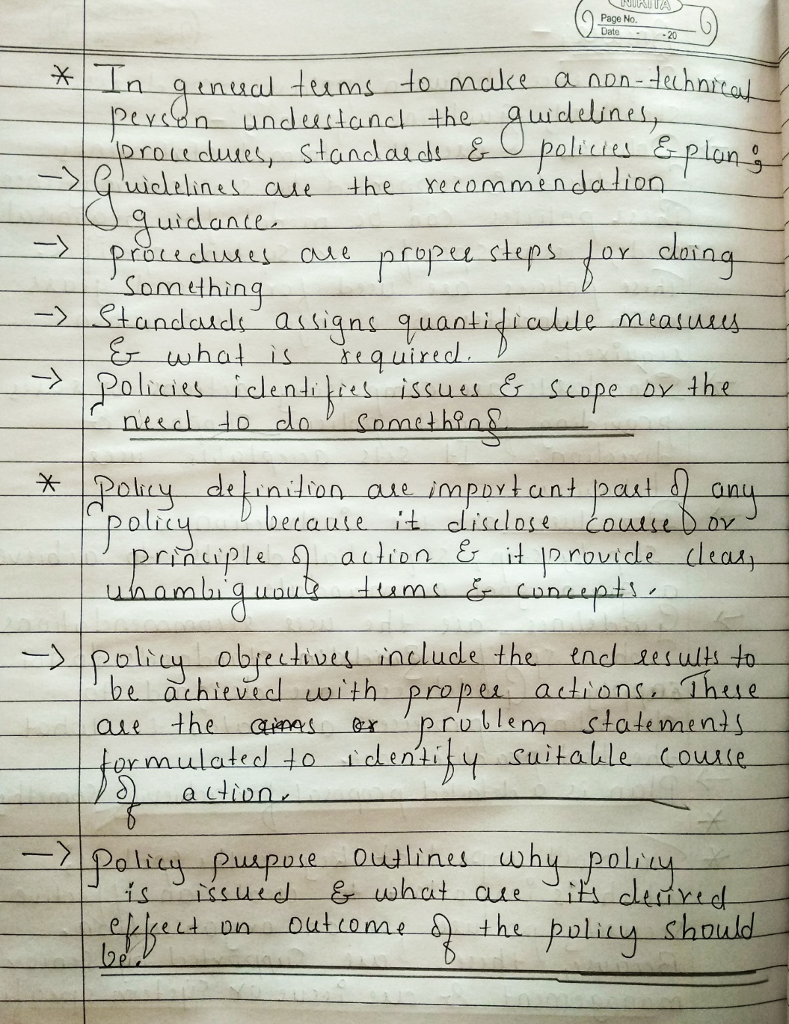 NIKITA
Page No.
Date - -20
* In general terms to make a non-technical
person understand the guidelines,
procedures, standards & policies & plan :
-> Guidelines are the recommendation
guidance.
-> procedures are proper steps for doing
something
-> Standards assigns quantifiable measures
& what is required.
-> Policies identifies issues & scope or the
need to do something
* Policy definition are important part of any
policy because it disclose course or
principle of action & it provide clear,
unambiguous terms & concepts.
-> policy objectives include the end results to
be achieved with proper actions. These
are the aims or problem statements
formulated to identify suitable course
of action.
-> Policy purpose outlines why policy
is issued & what are its desired
effect on outcome of the policy should
be.